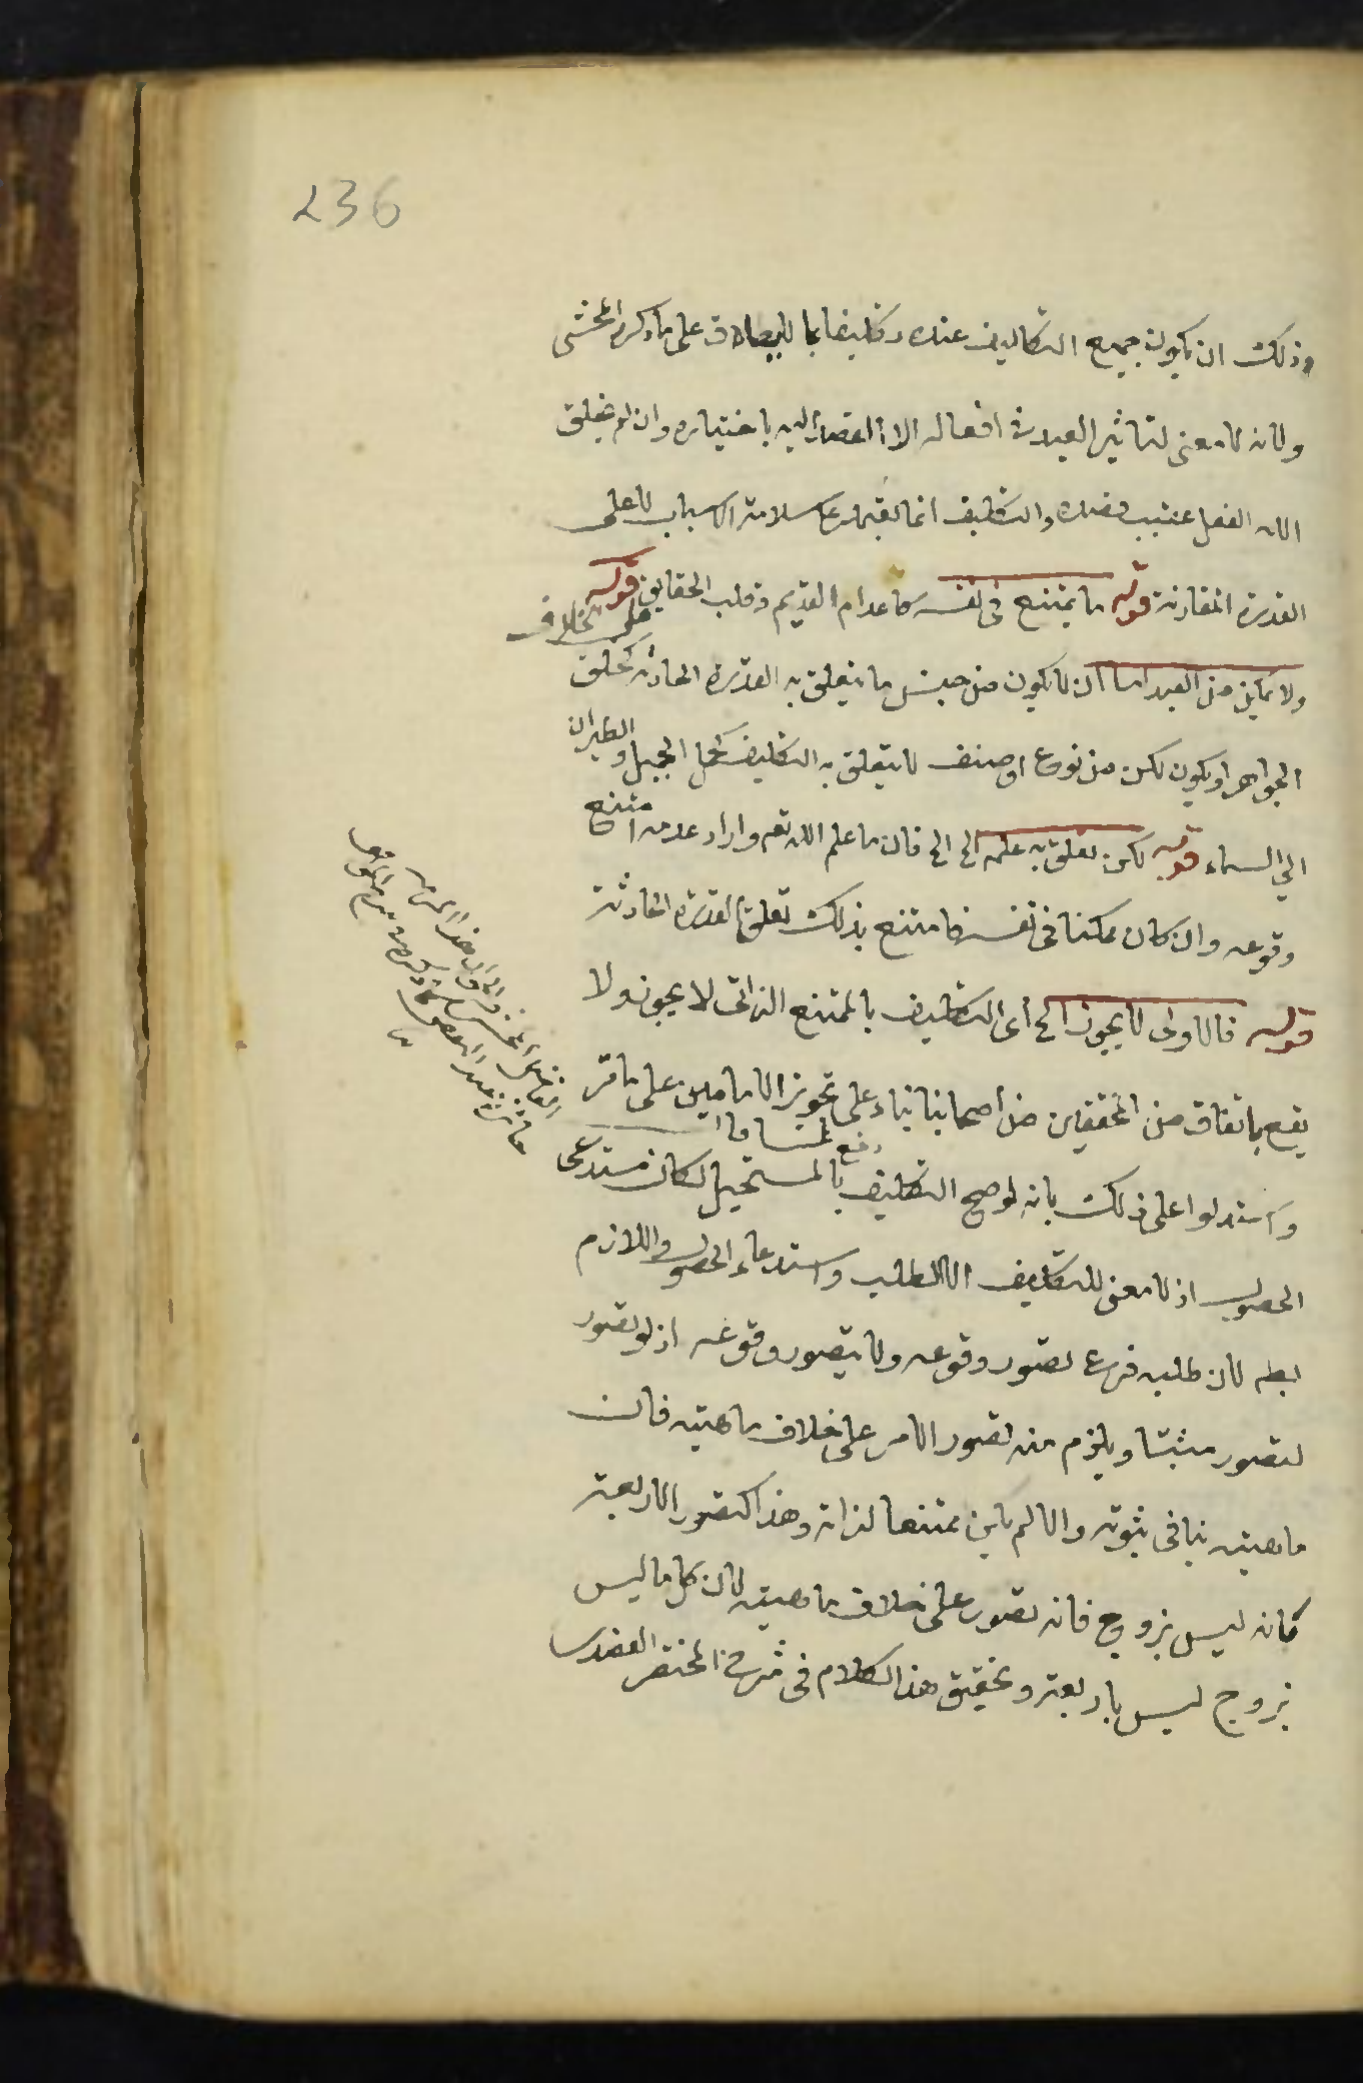 236
وذلك ان يكون جميع التكاليف عنده تكليفا بما لا يطاق على ما ذكره المحشى
ولانه لا معنى لتاثير العبد فى افعاله الا القصد اليه باختياره وان لم يخلق
الله الفعل عقيب قصده والتكليف انما يعتمد على سلامة الاسباب لا على
القدرة المقارنة قوله ما يمتنع فى نفسه كاعدام القديم وقلب الحقايق قوله
ولا يمكن من العبد اما ان لا يكون من جنس ما يتعلق به القدرة الحادثة كخلق
الجواهر او يكون لكن من نوع او صنف لا يتعلق به التكليف كحمل الجبل والطيران
الى السماء قوله لكن تعلق به علمه الخ الخ فان ما علم الله تع واراد عدمه امتنع
وقوعه وان كان ممكنا فى نفسه فامتنع بذلك تعلق القدرة الحادثة
قوله فالاولى لا يجوز الخ اى التكليف بالممتنع الذاتى لا يجوز ولا
يقع باتفاق من المحققين من اصحابنا بناء على تجويز الامامين على ما مر
واستدلوا على ذلك بانه لو صح التكليف بالمستحيل لكان مستدعى
الحصول اذ لا معنى للتكليف الا الطلب واستدعاء الحصول واللازم
بط لان طلبه فرع تصور وقوعه ولا يتصور وقوعه اذ لو تصور
لتصور مثبتا ويلزم منه تصور الامر على خلاف ماهيته فان
ماهيته ينافى ثبوته والا لم يكن ممتنعا لذاته وهذا كتصور الاربعة
كانه ليس بزوج فانه تصور على خلاف ماهيته لان كل ما ليس
بزوج ليس باربعة وتحقيق هذا الكلام فى شرح المختصر العضدى